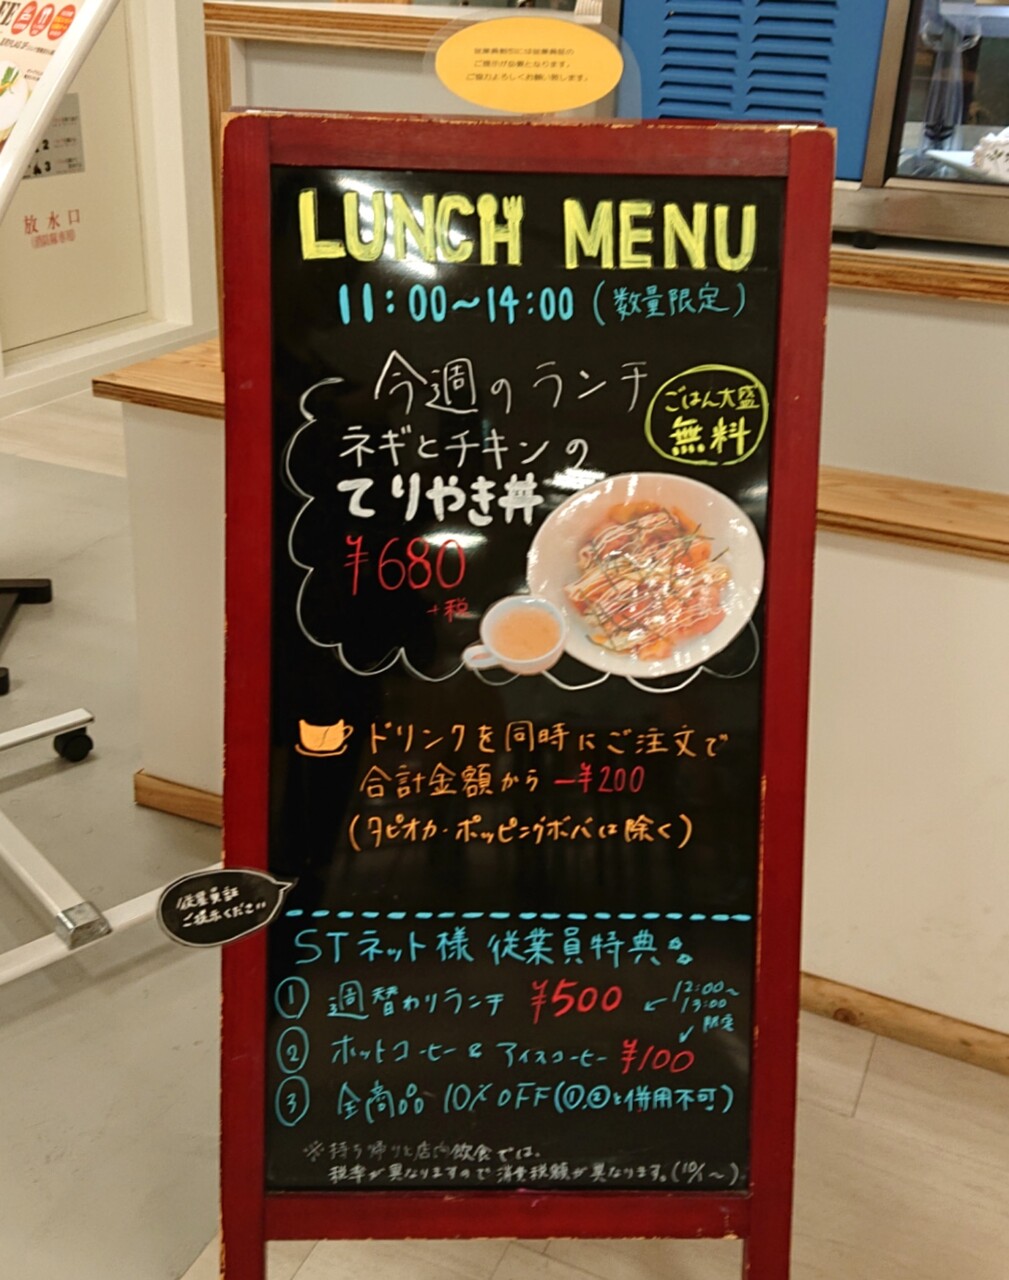 従業員割引には従業員証の
ご提示が必要となります。
ご協力よろしくお願い致します。
放水口
(消防隊専用)
LUNCH MENU
11:00~14:00 (数量限定)
今週のランチ
ごはん大盛
無料
ネギとチキンの
てりやき丼
¥680
+税
ドリンクを同時にご注文で
合計金額から -¥200
(タピオカ・ポッピングボバは除く)
従業員証
ご提示ください
STネット様 従業員特典。
① 週替わりランチ ¥500
12:00~
13:00
限定
② ホットコーヒー & アイスコーヒー ¥100
③ 全商品 10% OFF(①,②と併用不可)
※持ち帰りと店内飲食では、
税率が異なりますので消費税額が異なります。(10/1~)